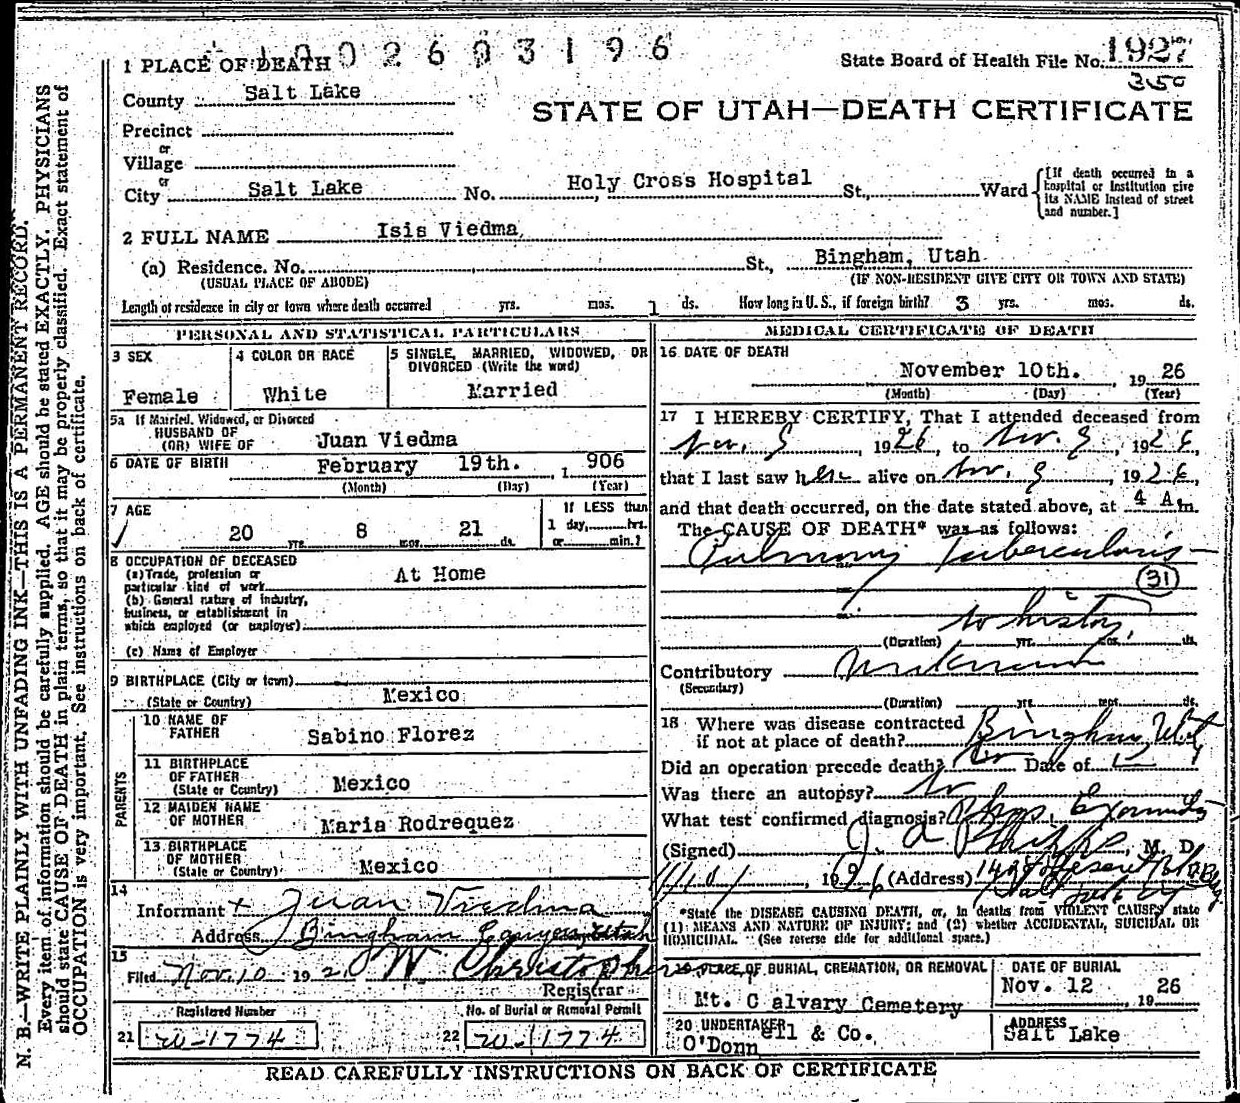 1 0 0 2 6 0 3 1 9 6
State Board of Health File No. 1927
350
STATE OF UTAH—DEATH CERTIFICATE
1 PLACE OF DEATH
County Salt Lake
Precinct
or
Village
or
City Salt Lake No. Holy Cross Hospital St., Ward [If death occurred in a hospital or institution give its NAME instead of street and number.]
2 FULL NAME Isis Viedma
(a) Residence. No. St., Bingham, Utah
(USUAL PLACE OF ABODE) (IF NON-RESIDENT GIVE CITY OR TOWN AND STATE)
Length of residence in city or town where death occurred yrs. mos. 1 ds. How long in U. S., if foreign birth? 3 yrs. mos. ds.
PERSONAL AND STATISTICAL PARTICULARS
3 SEX
Female
4 COLOR OR RACE
White
5 SINGLE, MARRIED, WIDOWED, OR
DIVORCED (Write the word)
Married
5a If Married, Widowed, or Divorced
HUSBAND OF
(OR) WIFE OF Juan Viedma
6 DATE OF BIRTH February 19th. 1 906
(Month) (Day) (Year)
7 AGE
20 yrs. 8 mos. 21 ds.
If LESS than
1 day, hrs.
or min.?
8 OCCUPATION OF DECEASED
(a) Trade, profession or
particular kind of work At Home
(b) General nature of industry,
business, or establishment in
which employed (or employer)
(c) Name of Employer
9 BIRTHPLACE (City or town)
(State or Country) Mexico
PARENTS
10 NAME OF
FATHER Sabino Florez
11 BIRTHPLACE
OF FATHER
(State or Country) Mexico
12 MAIDEN NAME
OF MOTHER Maria Rodrequez
13 BIRTHPLACE
OF MOTHER
(State or Country) Mexico
14
Informant + Juan Viedma
Address Bingham Canyon, Utah
15
Filed Nov. 10 192
Registrar
Registered Number
21 W-1774
No. of Burial or Removal Permit
22 W-1774
MEDICAL CERTIFICATE OF DEATH
16 DATE OF DEATH
November 10th. , 19 26
(Month) (Day) (Year)
17 I HEREBY CERTIFY, That I attended deceased from
Nov. 9 1926, to Nov. 9, 1926,
that I last saw her alive on Nov. 9, 1926,
and that death occurred, on the date stated above, at 4 A m.
The CAUSE OF DEATH* was as follows:
Pulmonary tuberculosis
31
no history
(Duration) yrs. mos. ds.
Contributory Unknown
(Secondary)
(Duration) yrs. mos. ds.
18 Where was disease contracted
if not at place of death? Bingham, Utah
Did an operation precede death? No Date of
Was there an autopsy? No
What test confirmed diagnosis? Phys Examination
(Signed) J. A. , M. D.
11/10/ 1926 (Address) Deseret Bk Bldg.
Salt Lake City
*State the DISEASE CAUSING DEATH, or, in deaths from VIOLENT CAUSES, state
(1) MEANS AND NATURE OF INJURY; and (2) whether ACCIDENTAL, SUICIDAL OR
HOMICIDAL. (See reverse side for additional space.)
19 PLACE OF BURIAL, CREMATION, OR REMOVAL
Mt. C alvary Cemetery
DATE OF BURIAL
Nov. 12 , 19 26
20 UNDERTAKER
O'Donn ell & Co.
ADDRESS
Salt Lake
READ CAREFULLY INSTRUCTIONS ON BACK OF CERTIFICATE
N. B.—WRITE PLAINLY WITH UNFADING INK—THIS IS A PERMANENT RECORD.
Every item of information should be carefully supplied. AGE should be stated EXACTLY. PHYSICIANS
should state CAUSE OF DEATH in plain terms, so that it may be properly classified. Exact statement of
OCCUPATION is very important. See instructions on back of certificate.